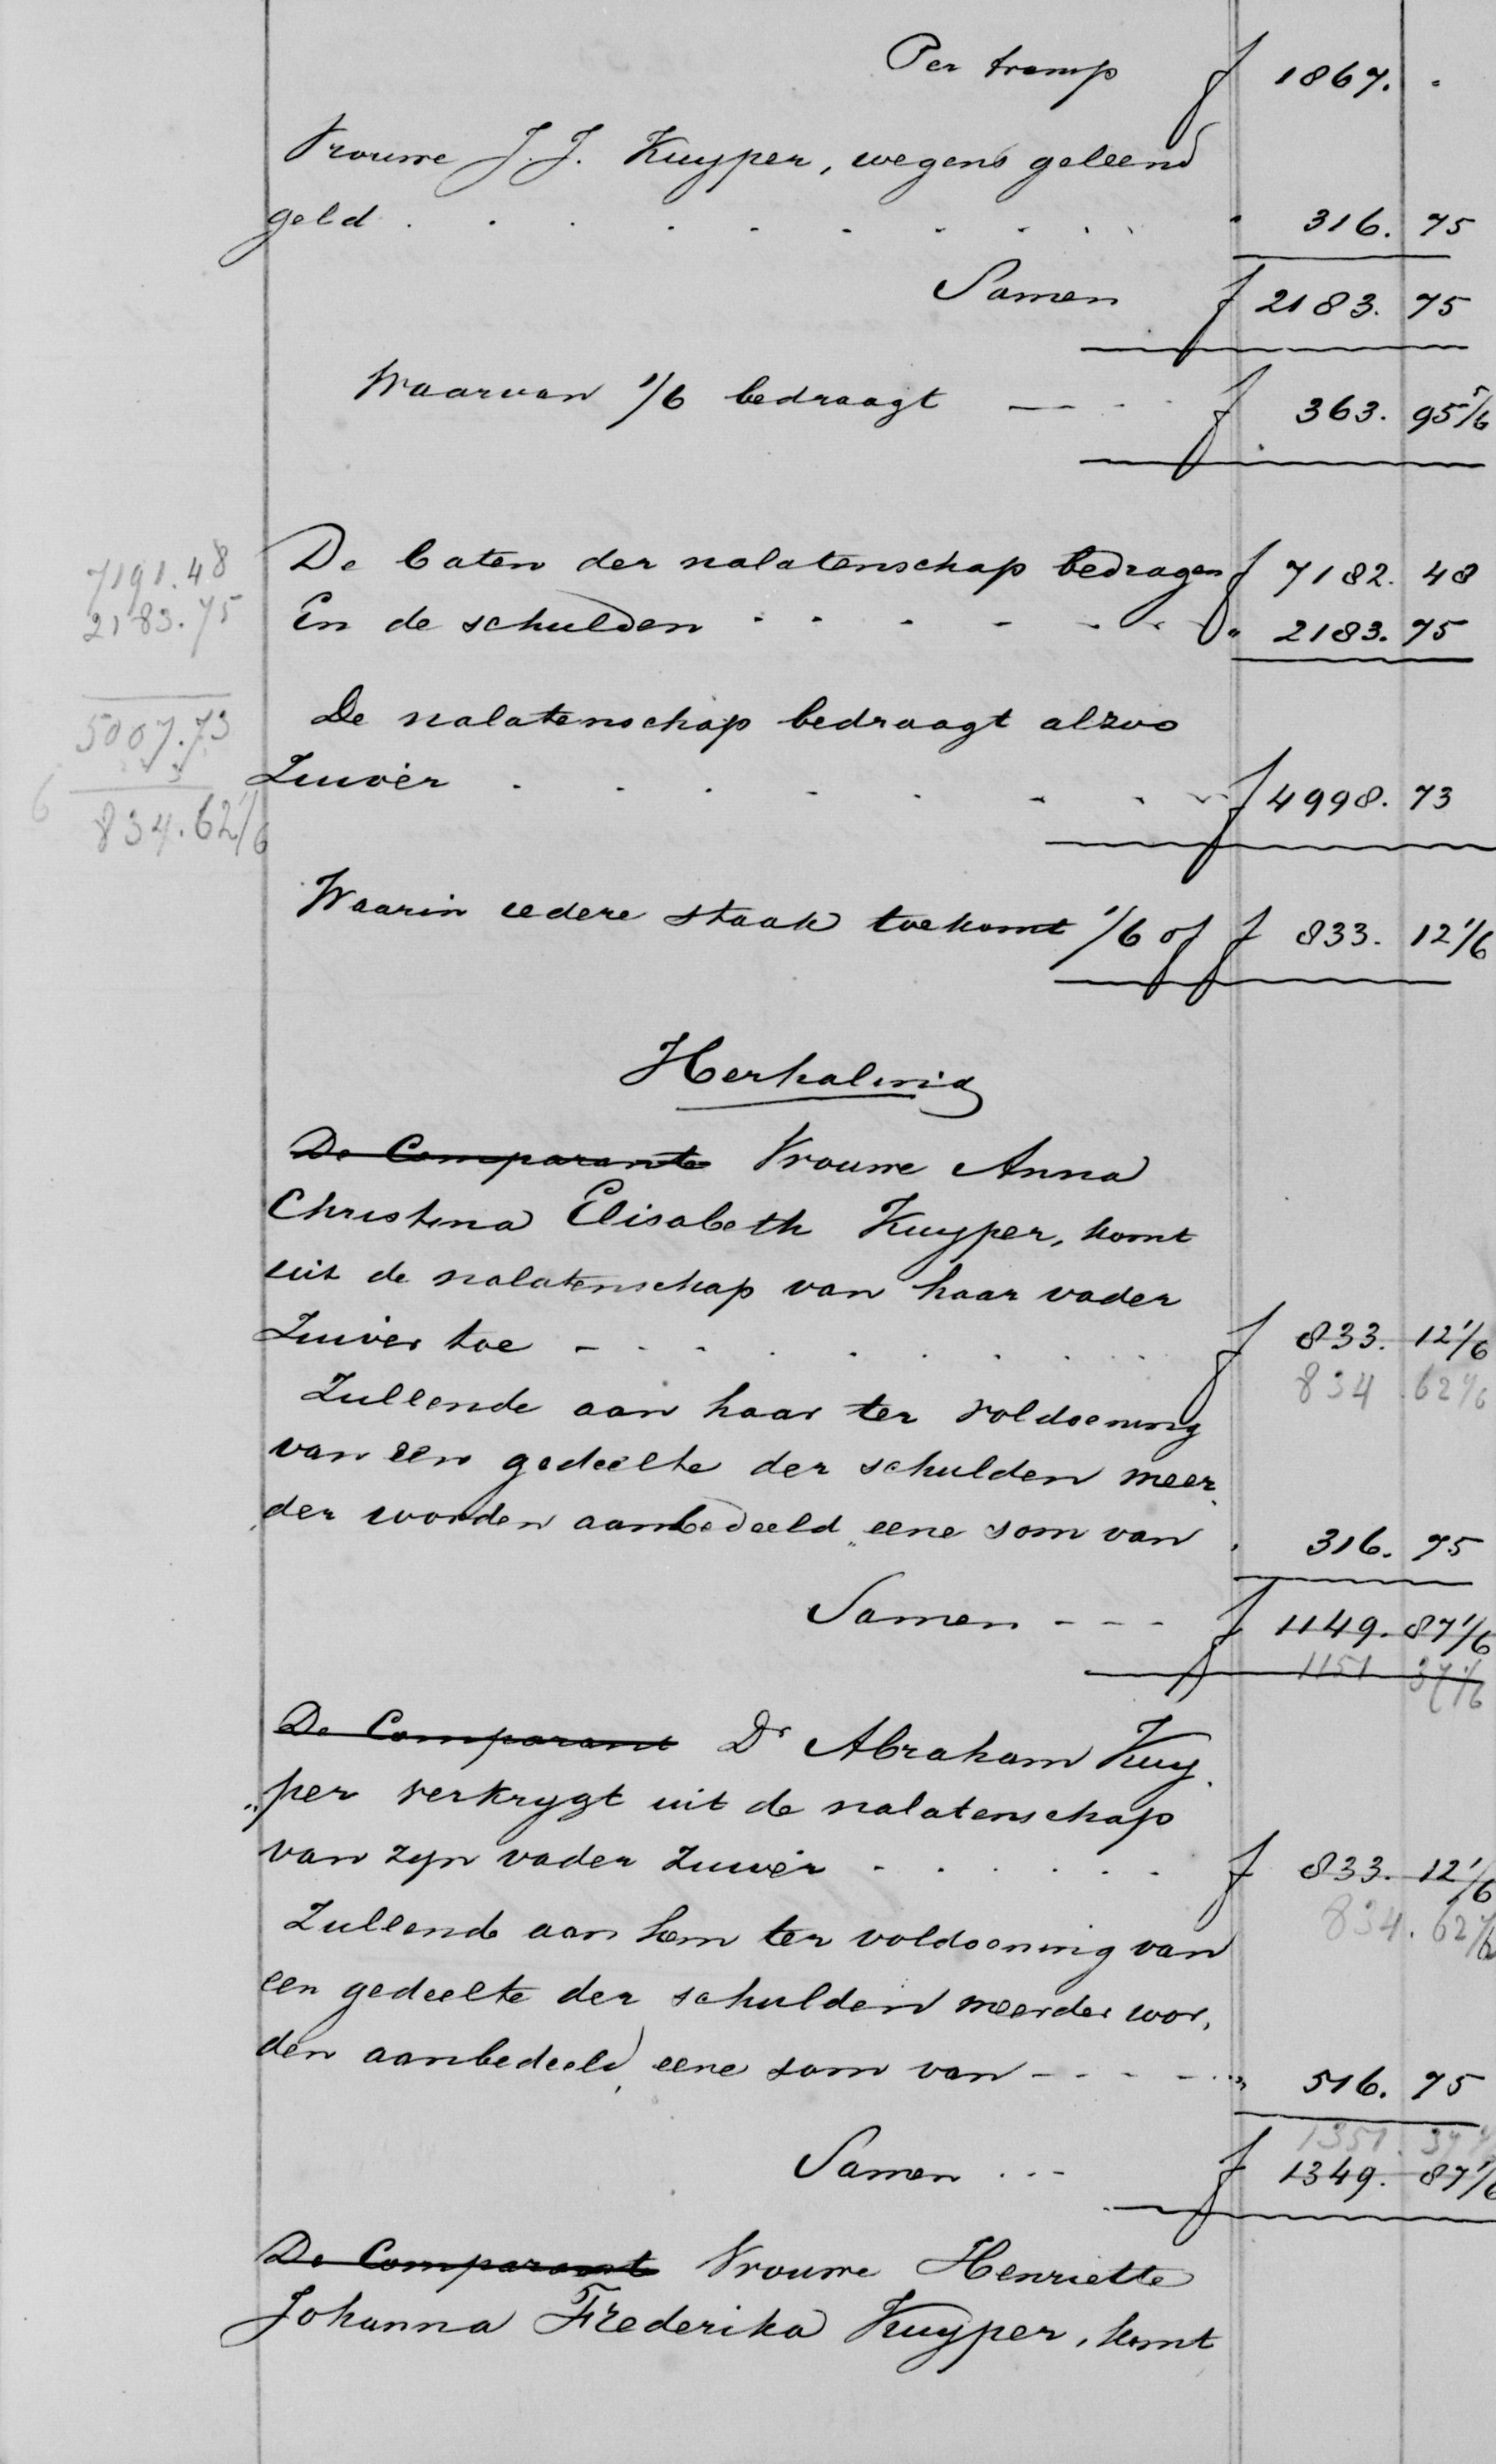 Per transp f 1867. "
Vrouwe J. J. Kuyper, wegens geleend
geld . . . . . . . . . " 316. 75
Samen f 2183. 75
Waarvan 1/6 bedraagt - - - f 363. 95 5/6
De baten der nalatenschap bedragen f 7182. 48
7191.48
En de schulden . . . . . . . " 2183. 75
2183.75
De nalatenschap bedraagt alzoo
5007.73
Zuiver . . . . . . . f 4998. 73
6 834.62 1/6
Waarin iedere staak toekomt 1/6 of f 833. 12 1/6
Herhaling
De Comparante Vrouwe Anna
Christina Elisabeth Kuyper, komt
uit de nalatenschap van haar vader
Zuiver toe - . . . . . . . f 833. 12 1/6
834 . 62 1/6
Zullende aan haar ter voldoening
van een gedeelte der schulden meer„
„der worden aanbedeeld, eene som van " 316. 75
Samen - - - f 1149. 87 1/6
1151 37 1/6
De Comparant Dr Abraham Kuy„
„per verkrygt uit de nalatenschap
van zyn vader zuiver . . . . . . f 833. 12 1/6
834. 62 1/6
Zullende aan hem ter voldoening van
een gedeelte der schulden meerder wor„
den aanbedeeld, eene som van - - - - - " 516. 75
1351. 37 1/6
Samen . . - f 1349. 87 1/6
De Comparante Vrouwe Henriette
Johanna Frederika Kuyper, komt